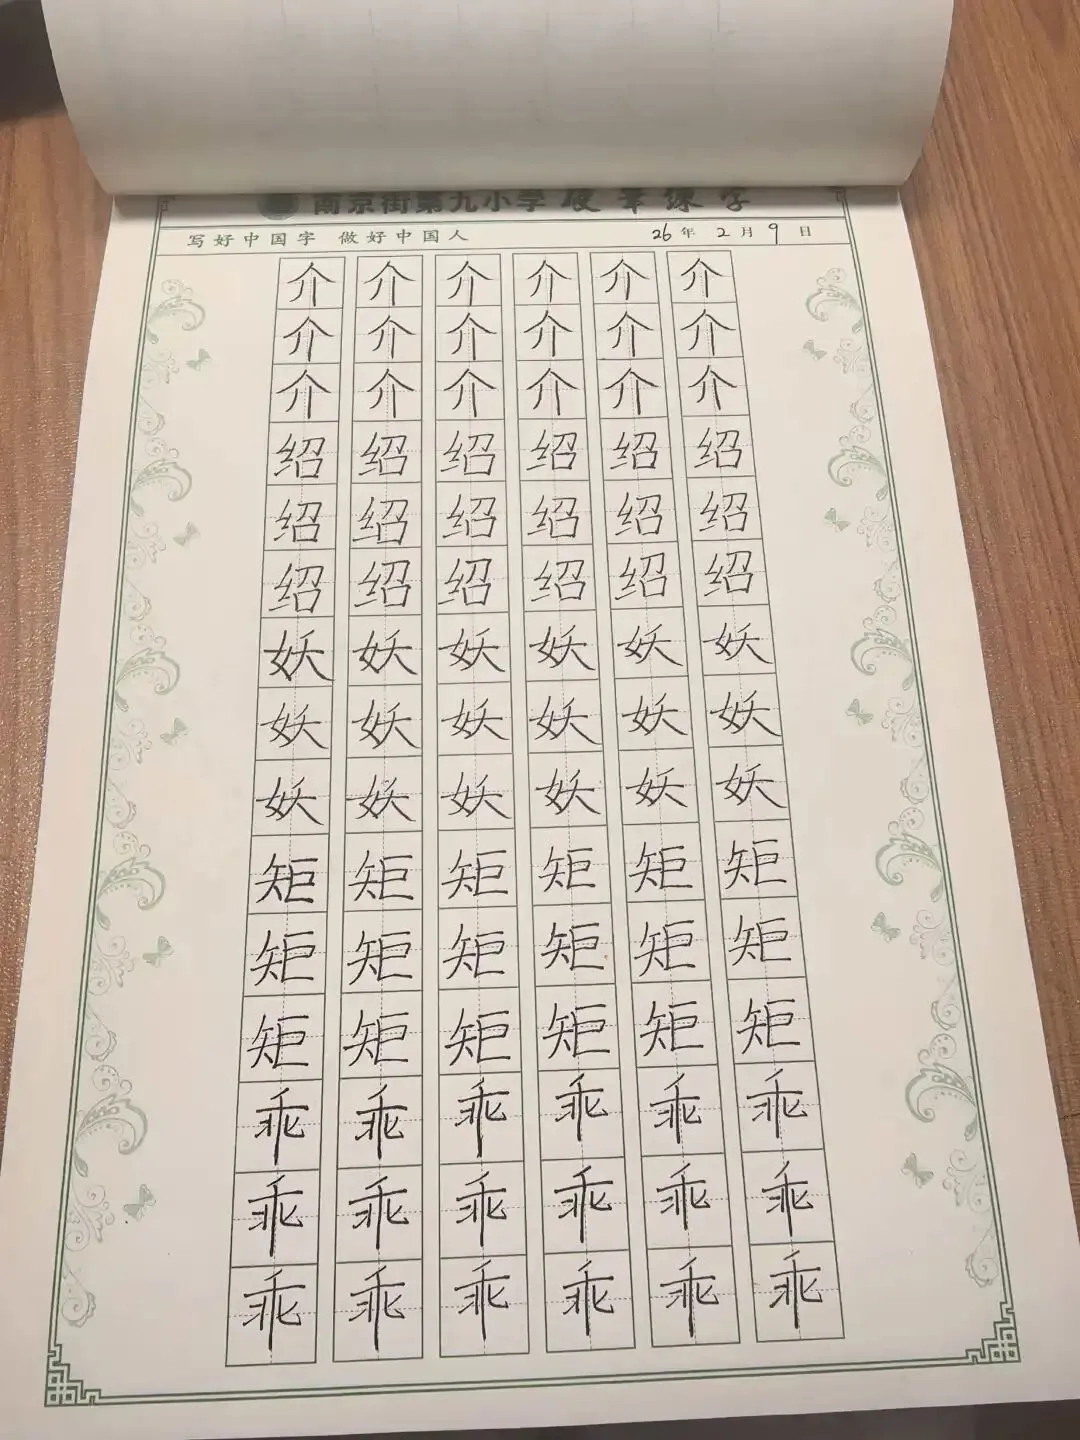 南京街第九小学硬笔练字
写好中国字 做好中国人 26年2月9日
介介介介介介
介介介介介介
介介介介介介
绍绍绍绍绍绍
绍绍绍绍绍绍
绍绍绍绍绍绍
妖妖妖妖妖妖
妖妖妖妖妖妖
妖妖妖妖妖妖
矩矩矩矩矩矩
矩矩矩矩矩矩
矩矩矩矩矩矩
乖乖乖乖乖乖
乖乖乖乖乖乖
乖乖乖乖乖乖